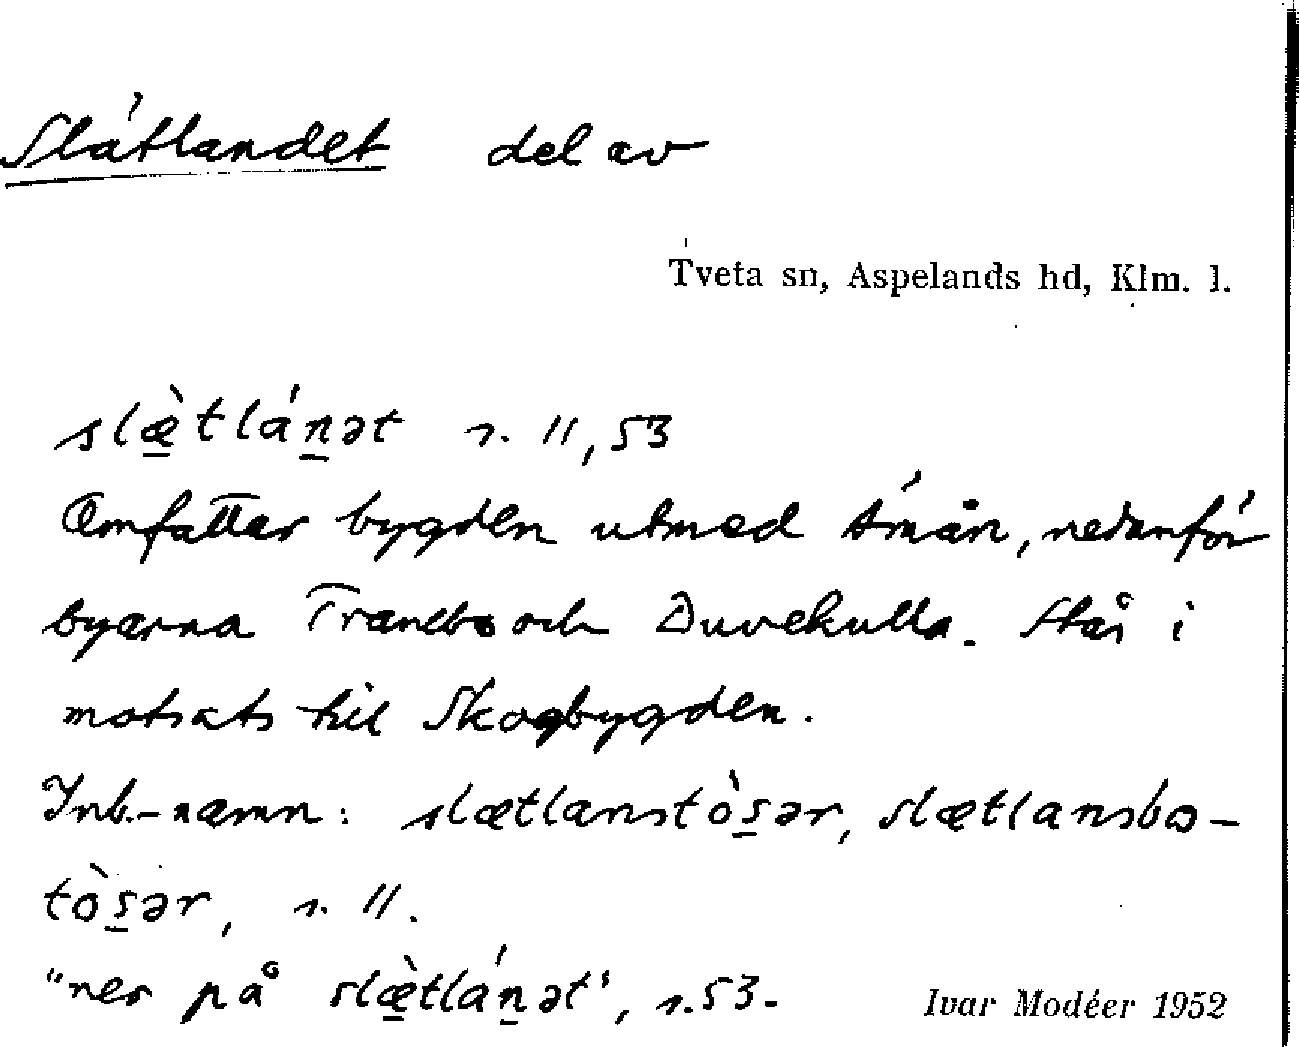 Slätlandet del av
Tveta sn, Aspelands hd, Klm. l.
slæ̠̀tlán̠ət s. 11, 53
Omfattar bygden utmed åmån, nedanför
byarna Tranebo och Duvekulla. Står i
motsats till Skogbygden.
Inb.-namn: slætlanstòs̠ər, slætlansbo-
tòs̠ər, s. 11.
"ner på slæ̠̀tlán̠ət", s. 53.
Ivar Modéer 1952